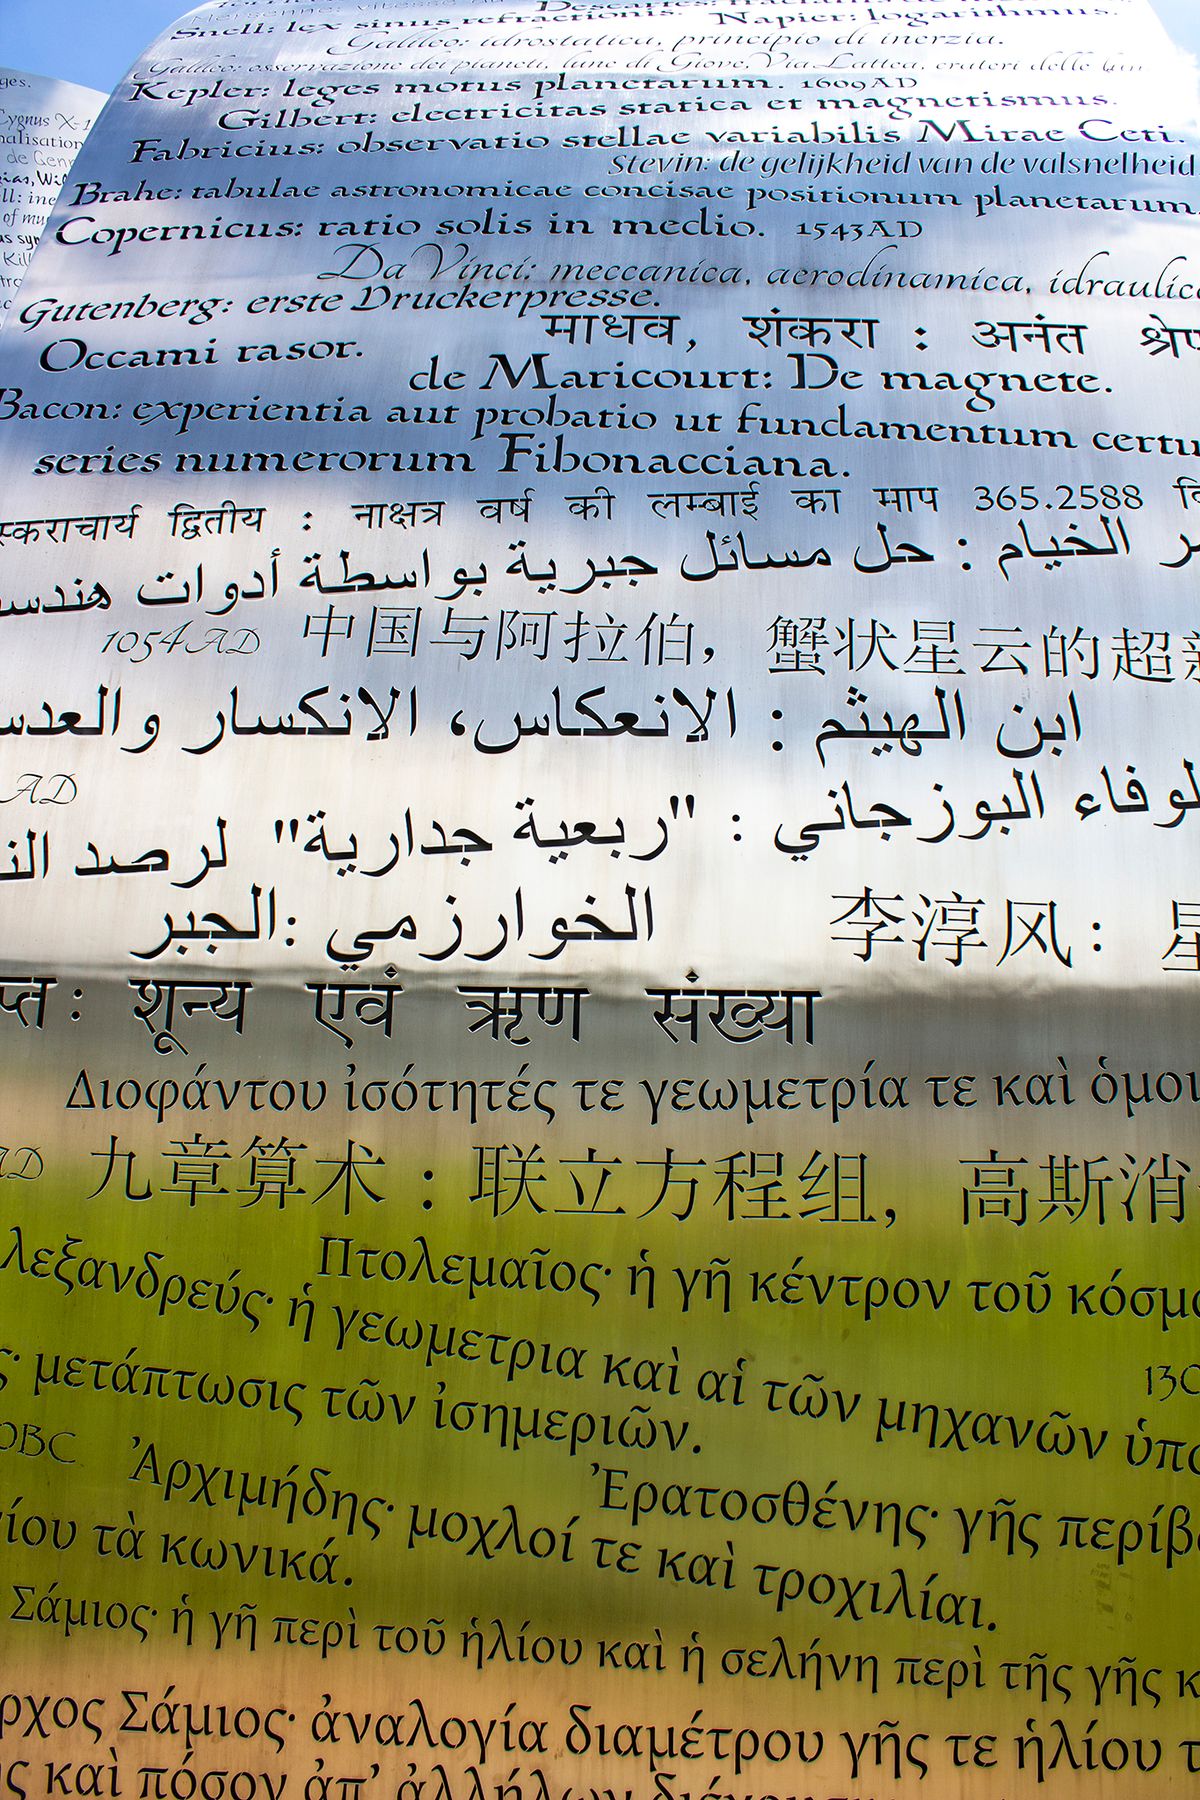 Snell: lex sinus refractionis. Napier: logarithmus.
Galileo: idrostatica, principio di inerzia.
Galileo: osservazione dei pianeti, lune di Giove, Via Lattea, crateri delle
Kepler: leges motus planetarum. 1609AD
Gilbert: electricitas statica et magnetismus.
Fabricius: observatio stellae variabilis Mirae Ceti.
Stevin: de gelijkheid van de valsnelheid
Brahe: tabulae astronomicae concisae positionum planetarum
Copernicus: ratio solis in medio. 1543AD
Da Vinci: meccanica, aerodinamica, idraulica
Gutenberg: erste Druckerpresse.
माधव, शंकरा : अनंत
Occami rasor.
de Maricourt: De magnete.
Bacon: experientia aut probatio ut fundamentum
series numerorum Fibonacciana.
स्कराचार्य द्वितीय : नाक्षत्र वर्ष की लम्बाई का माप 365.2588
ر الخيام : حل مسائل جبرية بواسطة أدوات هندس
1054AD 中国与阿拉伯，蟹状星云的超新
ابن الهيثم : الانعكاس، الانكسار والعدس
AD
لوفاء البوزجاني : "ربعية جدارية" لرصد الن
الخوارزمي :الجبر
李淳风：星
प्त: शून्य एवं ऋण संख्या
Διοφάντου ἰσότητές τε γεωμετρία τε καὶ ὁμοι
AD 九章算术：联立方程组，高斯消
Πτολεμαῖος· ἡ γῆ κέντρον τοῦ κόσμο
λεξανδρεύς· ἡ γεωμετρια καὶ αἱ τῶν μηχανῶν ὑπο
ς· μετάπτωσις τῶν ἰσημεριῶν. 130
0BC
Ἐρατοσθένης· γῆς περίβο
Ἀρχιμήδης· μοχλοί τε καὶ τροχιλίαι.
ίου τὰ κωνικά.
Σάμιος· ἡ γῆ περὶ τοῦ ἡλίου καὶ ἡ σελήνη περὶ τῆς γῆς κ
ρχος Σάμιος· ἀναλογία διαμέτρου γῆς τε ἡλίου τ
ς καὶ πόσον ἀπ' ἀλλήλων